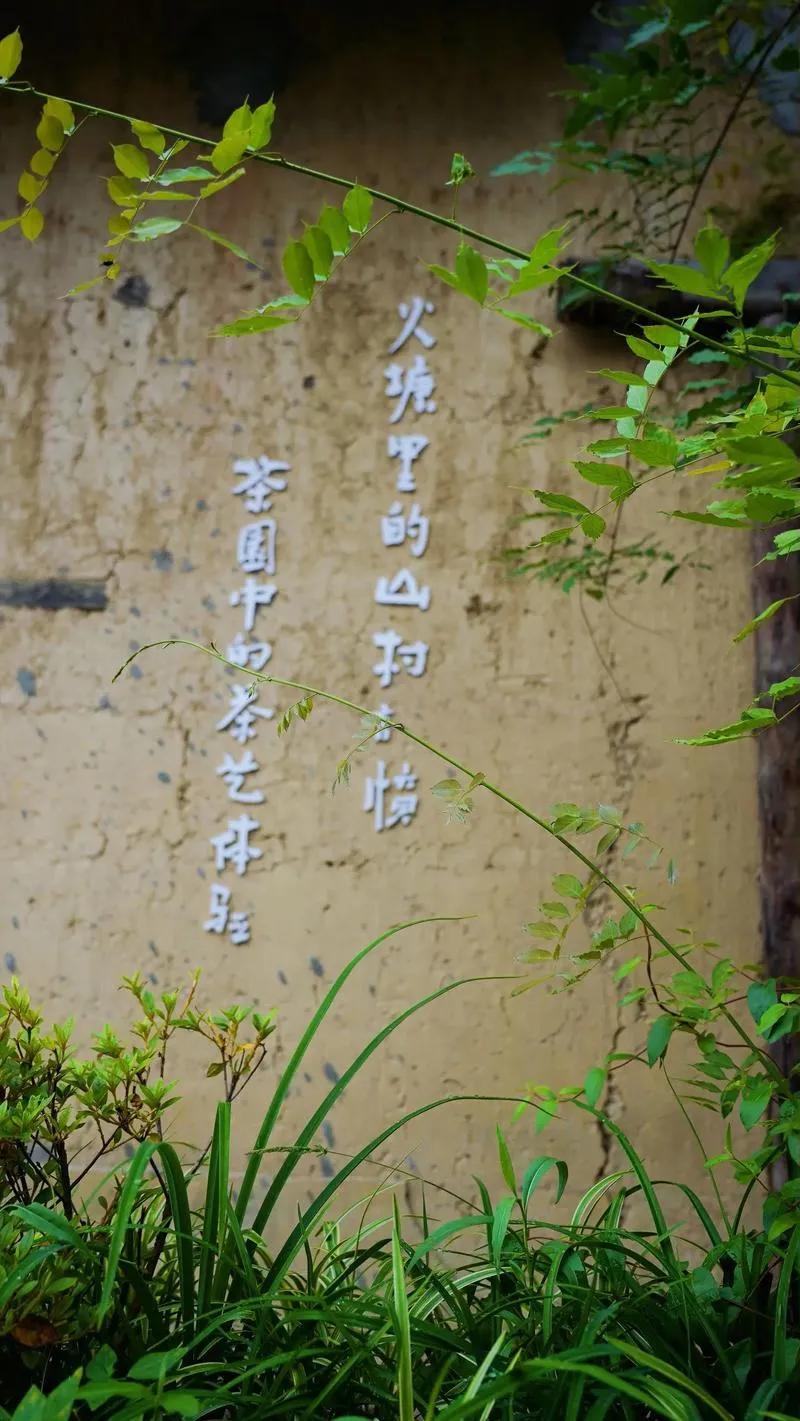 火塘里的山村
茶园中的茶艺体验